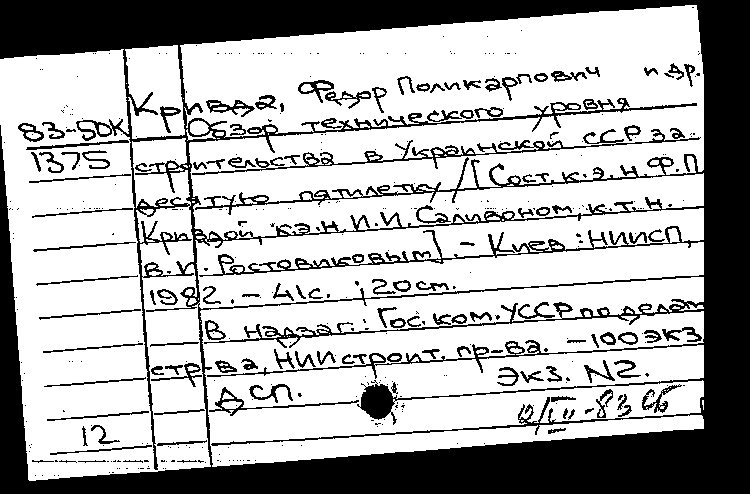 Кривда, Федор Поликарпович и др.
83-5ДК Обзор технического уровня
1375 строительства в Украинской ССР за
десятую пятилетку / [Сост. к.э.н. Ф.П.
Кривдой, к.э.н. И.И. Саливоном, к.т.н.
В.И. Ростовиковым]. - Киев : НИИСП,
1982. - 41с. ; 20см.
В надзаг.: Гос. ком. УССР по делам
стр-ва, НИИ строит. пр-ва. - 100 экз.
ДСП. Экз. N2.
12 -83 СБ